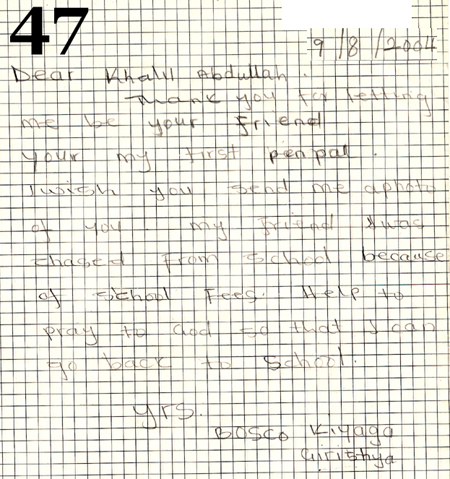 47
9/8/2004
Dear Khalil Abdullah.
Thank you for letting
me be your friend
your my first penpal.
I wish you send me aphoto
of you my friend I was
chased from school because
of school Fees. Help to
pray to God so that I can
go back to school.
yrs.
Bosco Kiyaga